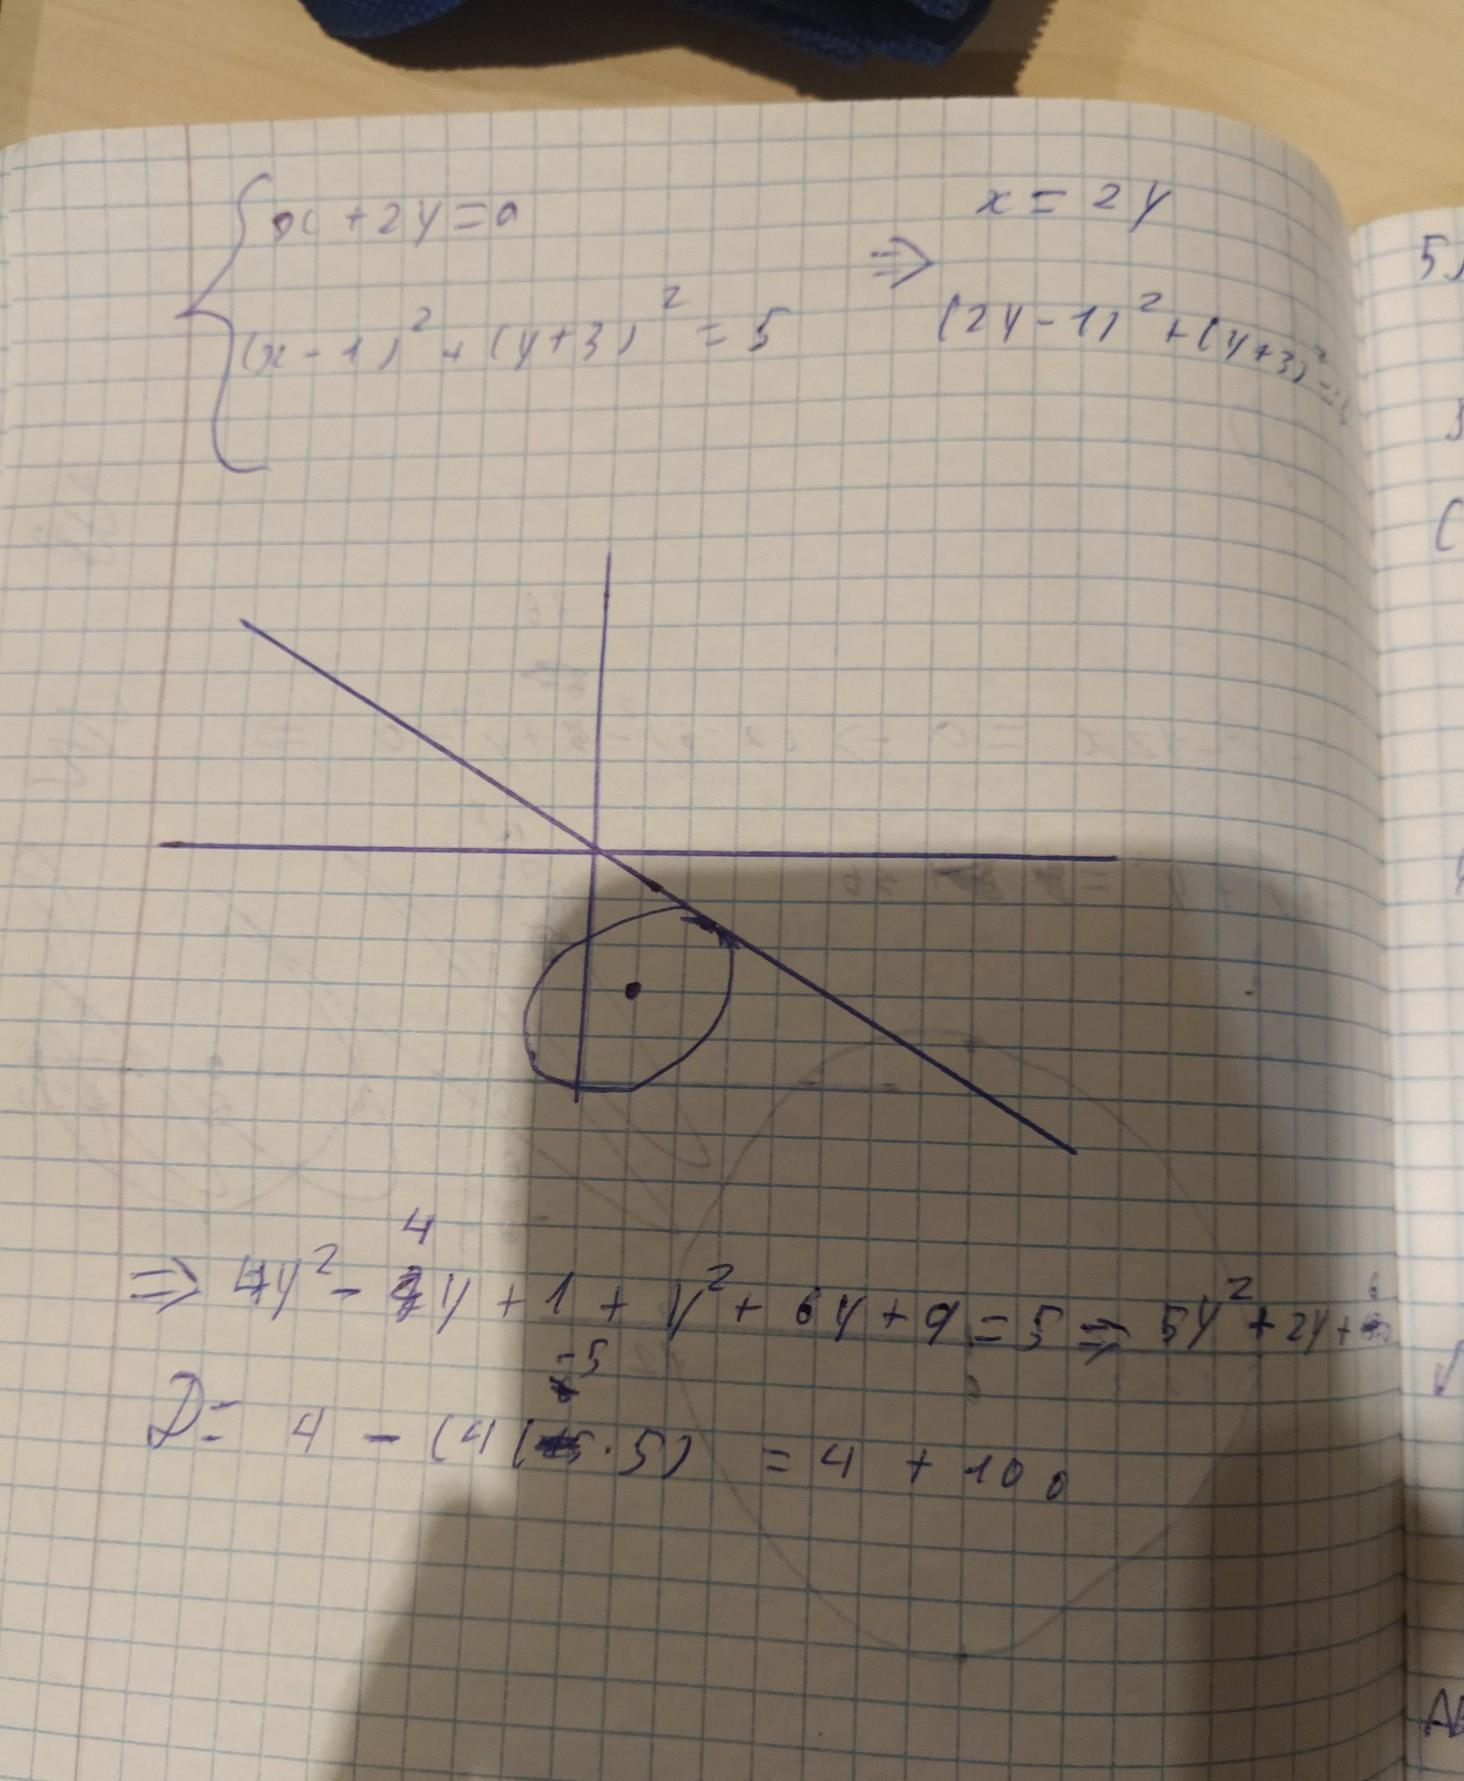 x + 2y = 0
(x - 1)² + (y + 3)² = 5
⇒
x = 2y
(2y - 1)² + (y + 3)² =
⇒ 4y² - 4y + 1 + y² + 6y + 9 = 5 ⇒ 5y² + 2y +
D = 4 - (4(-5 · 5) = 4 + 100